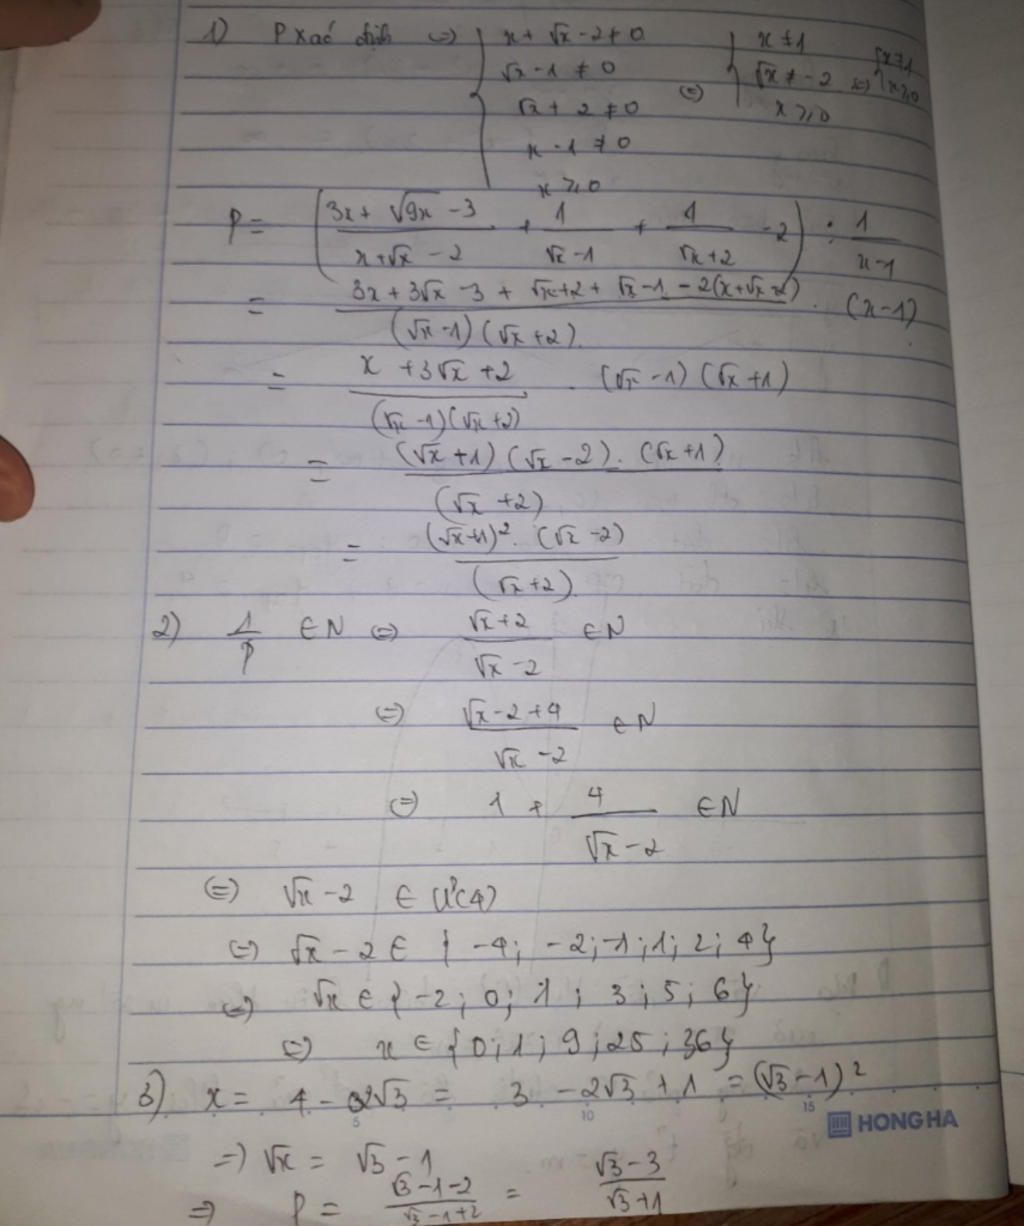 1) P xác định ⇔ { x + √x - 2 ≠ 0 { x ≠ 1
√x - 1 ≠ 0 √x ≠ -2 ⇔ { x ≠ 1
√x + 2 ≠ 0 ⇔ x ⩾ 0 x ⩾ 0
x - 1 ≠ 0
x ⩾ 0
P = ( (3x + √9x - 3)/(x + √x - 2) + 1/(√x - 1) + 1/(√x + 2) - 2 ) : 1/(x - 1)
= (3x + 3√x - 3 + √x + 2 + √x - 1 - 2(x + √x - 2))/((√x - 1)(√x + 2)) . (x - 1)
= (x + 3√x + 2)/((√x - 1)(√x + 2)) . (√x - 1)(√x + 1)
= ((√x + 1)(√x - 2) . (√x + 1))/(√x + 2)
= ((√x + 1)² . (√x - 2))/(√x + 2)
2) 1/P ∈ N ⇔ (√x + 2)/(√x - 2) ∈ N
⇔ (√x - 2 + 4)/(√x - 2) ∈ N
⇔ 1 + 4/(√x - 2) ∈ N
⇔ √x - 2 ∈ Ư(4)
⇔ √x - 2 ∈ { -4; -2; -1; 1; 2; 4 }
⇔ √x ∈ { -2; 0; 1; 3; 5; 6 }
⇔ x ∈ { 0; 1; 9; 25; 36 }
3) x = 4 - 2√3 = 3 - 2√3 + 1 = (√3 - 1)²
5 10 15
HONG HA
⇒ √x = √3 - 1
⇒ P = (√3 - 1 - 2)/(√3 - 1 + 2) = (√3 - 3)/(√3 + 1)